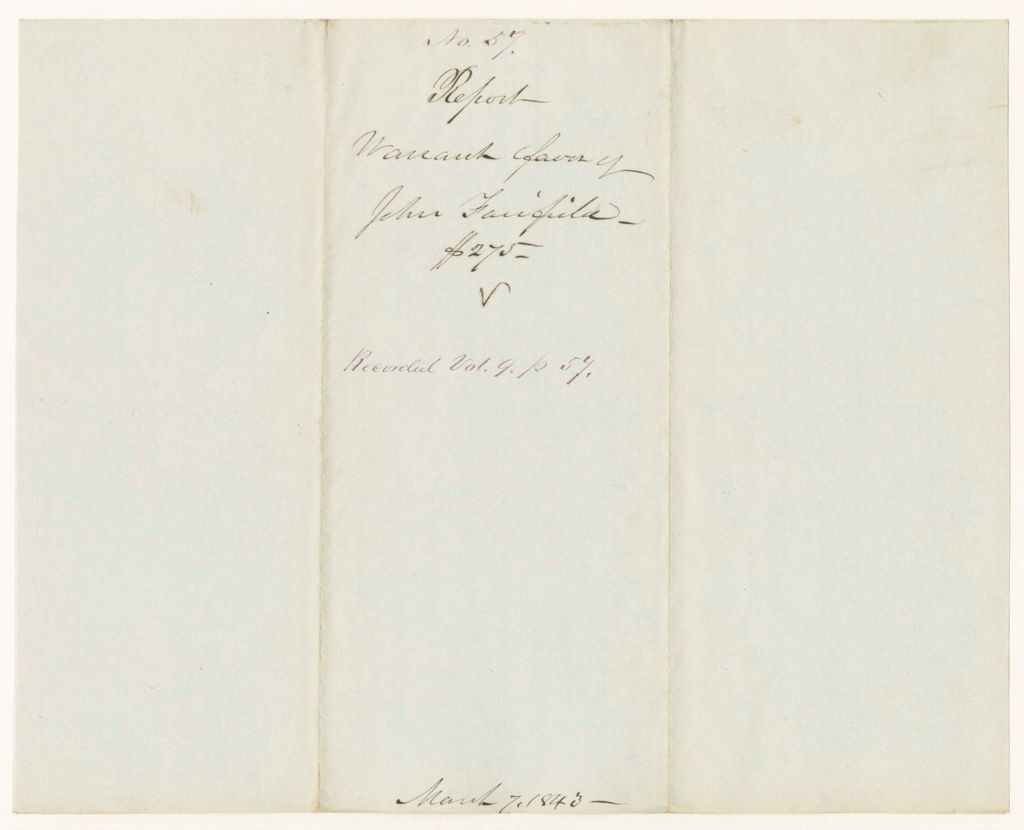 No. 57.
Report
Warrant favor of
John Fairfield –
$275 –
Recorded Vol. 9. p 57.
March 7, 1843 –